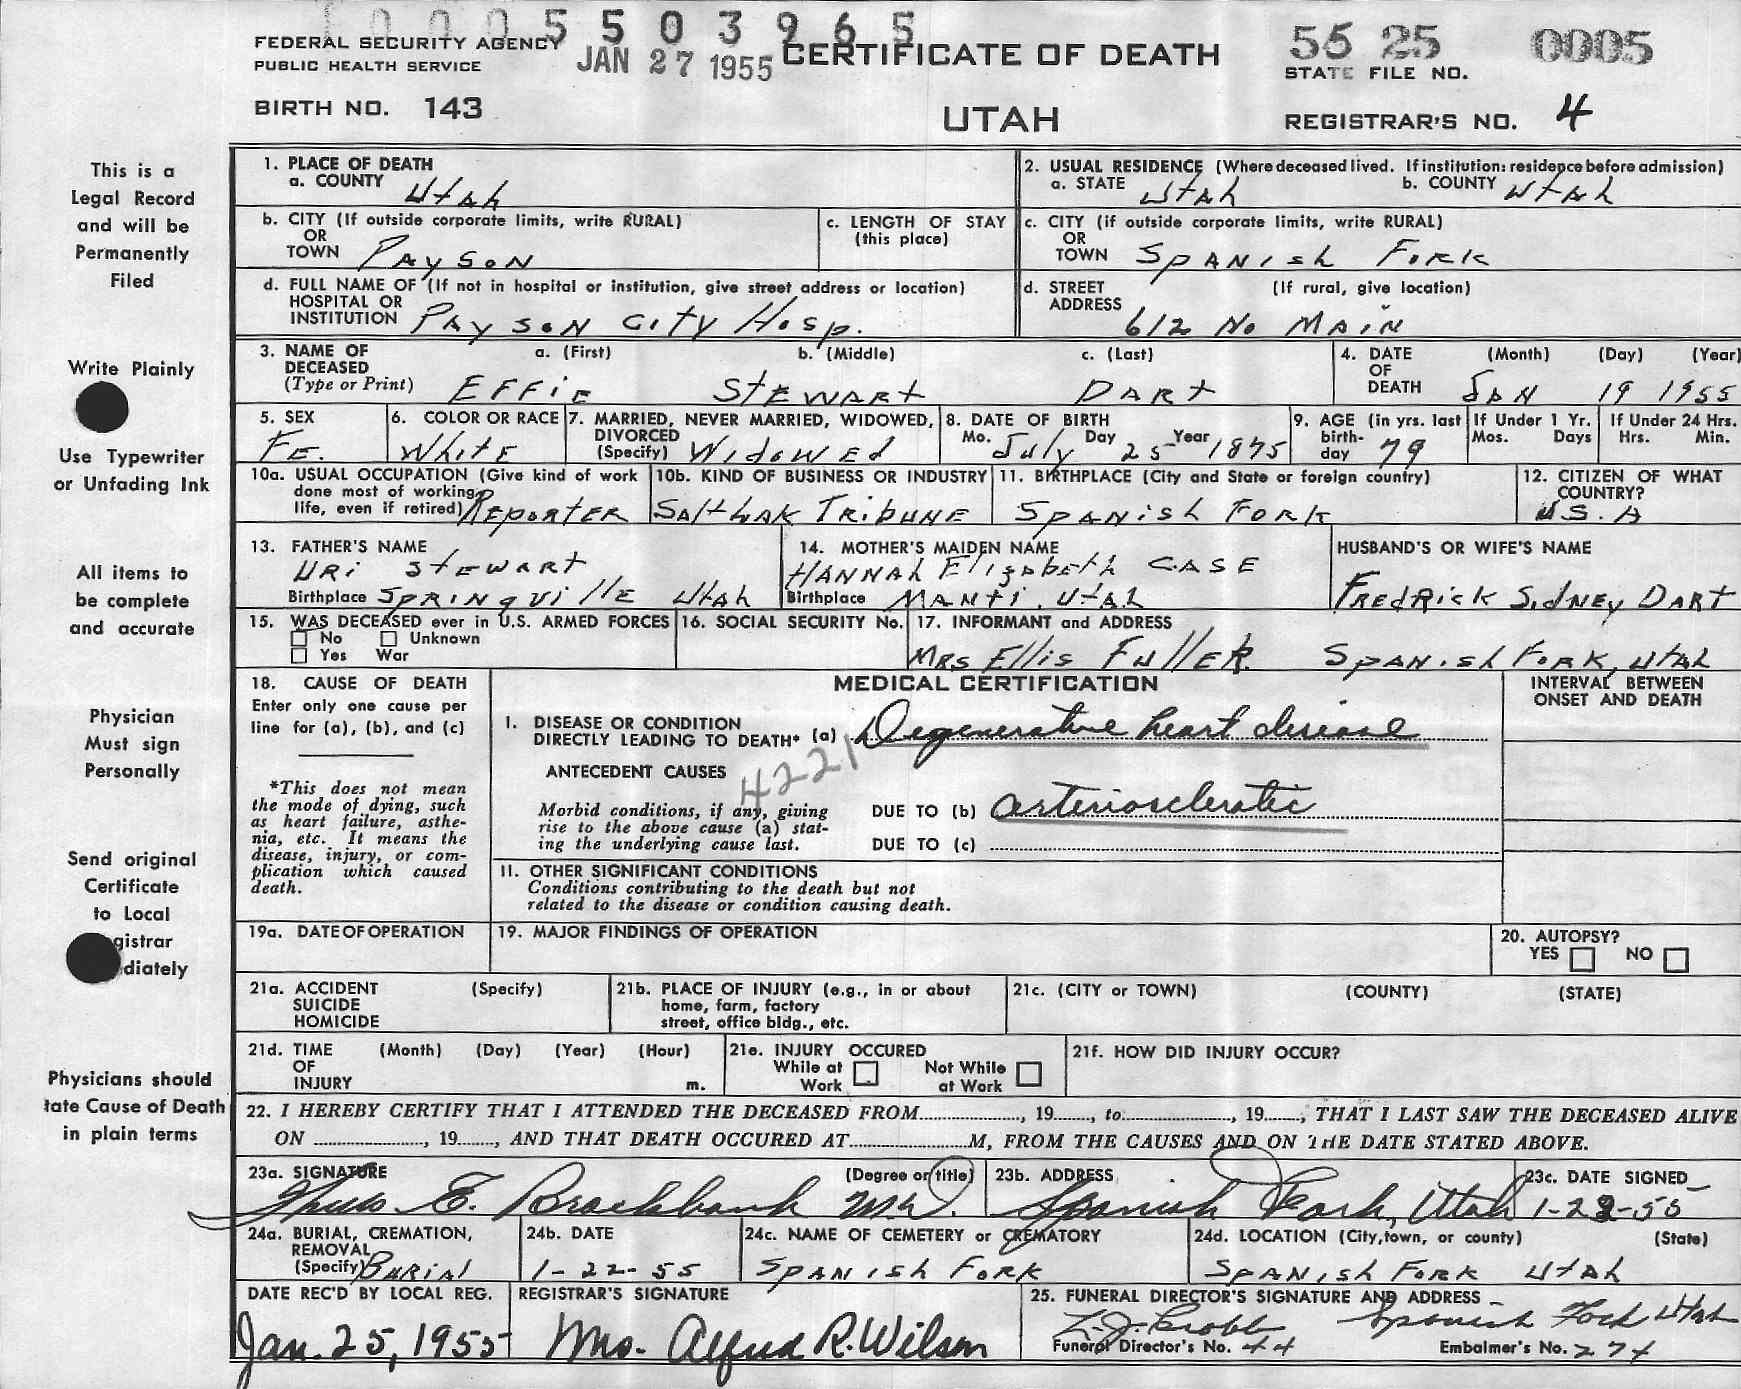 0005503965
FEDERAL SECURITY AGENCY
PUBLIC HEALTH SERVICE
JAN 27 1955
CERTIFICATE OF DEATH
55 25 0005
STATE FILE NO.
BIRTH NO. 143
UTAH
REGISTRAR'S NO. 4
This is a
Legal Record
and will be
Permanently
Filed
Write Plainly
Use Typewriter
or Unfading Ink
All items to
be complete
and accurate
Physician
Must sign
Personally
Send original
Certificate
to Local
gistrar
diately
Physicians should
tate Cause of Death
in plain terms
1. PLACE OF DEATH
a. COUNTY Utah
2. USUAL RESIDENCE (Where deceased lived. If institution: residence before admission)
a. STATE Utah b. COUNTY Utah
b. CITY (If outside corporate limits, write RURAL)
OR
TOWN Payson
c. LENGTH OF STAY
(this place)
c. CITY (if outside corporate limits, write RURAL)
OR
TOWN Spanish Fork
d. FULL NAME OF (If not in hospital or institution, give street address or location)
HOSPITAL OR
INSTITUTION Payson City Hosp.
d. STREET (If rural, give location)
ADDRESS
612 No Main
3. NAME OF DECEASED (Type or Print)
a. (First) b. (Middle) c. (Last)
Effie Stewart Dart
4. DATE OF DEATH (Month) (Day) (Year)
Jan 19 1955
5. SEX
Fe.
6. COLOR OR RACE
White
7. MARRIED, NEVER MARRIED, WIDOWED,
DIVORCED
(Specify) Widowed
8. DATE OF BIRTH
Mo. July Day 25 Year 1875
9. AGE (in yrs. last
birth-
day 79
If Under 1 Yr.
Mos. Days
If Under 24 Hrs.
Hrs. Min.
10a. USUAL OCCUPATION (Give kind of work
done most of working
life, even if retired) Reporter
10b. KIND OF BUSINESS OR INDUSTRY
Salt Lak Tribune
11. BIRTHPLACE (City and State or foreign country)
Spanish Fork
12. CITIZEN OF WHAT
COUNTRY?
U.S.A
13. FATHER'S NAME
Uri Stewart
Birthplace Springville Utah
14. MOTHER'S MAIDEN NAME
Hannah Elizabeth Case
Birthplace Manti, Utah
HUSBAND'S OR WIFE'S NAME
Fredrick Sidney Dart
15. WAS DECEASED ever in U.S. ARMED FORCES
No Unknown
Yes War
16. SOCIAL SECURITY No.
17. INFORMANT and ADDRESS
Mrs Ellis Fuller Spanish Fork, Utah
18. CAUSE OF DEATH
Enter only one cause per
line for (a), (b), and (c)
*This does not mean
the mode of dying, such
as heart failure, asthe-
nia, etc. It means the
disease, injury, or com-
plication which caused
death.
MEDICAL CERTIFICATION
INTERVAL BETWEEN
ONSET AND DEATH
I. DISEASE OR CONDITION
DIRECTLY LEADING TO DEATH* (a) Degenerative heart disease
ANTECEDENT CAUSES
4221
Morbid conditions, if any, giving
rise to the above cause (a) stat-
ing the underlying cause last.
DUE TO (b) arteriosclerotic
DUE TO (c)
II. OTHER SIGNIFICANT CONDITIONS
Conditions contributing to the death but not
related to the disease or condition causing death.
19a. DATE OF OPERATION
19. MAJOR FINDINGS OF OPERATION
20. AUTOPSY?
YES NO
21a. ACCIDENT (Specify)
SUICIDE
HOMICIDE
21b. PLACE OF INJURY (e.g., in or about
home, farm, factory
street, office bldg., etc.
21c. (CITY or TOWN) (COUNTY) (STATE)
21d. TIME (Month) (Day) (Year) (Hour)
OF
INJURY m.
21e. INJURY OCCURED
While at Work Not While at Work
21f. HOW DID INJURY OCCUR?
22. I HEREBY CERTIFY THAT I ATTENDED THE DECEASED FROM............, 19......, to............, 19......, THAT I LAST SAW THE DECEASED ALIVE
ON ............, 19......, AND THAT DEATH OCCURED AT............M, FROM THE CAUSES AND ON THE DATE STATED ABOVE.
23a. SIGNATURE (Degree or title)
E. Brockbank M.D.
23b. ADDRESS
Spanish Fork, Utah
23c. DATE SIGNED
1-22-55
24a. BURIAL, CREMATION,
REMOVAL
(Specify) Burial
24b. DATE
1-22-55
24c. NAME OF CEMETERY or CREMATORY
Spanish Fork
24d. LOCATION (City, town, or county) (State)
Spanish Fork Utah
DATE REC'D BY LOCAL REG.
Jan. 25, 1955
REGISTRAR'S SIGNATURE
Mrs. Alfred R. Wilson
25. FUNERAL DIRECTOR'S SIGNATURE AND ADDRESS
Spanish Fork Utah
Funeral Director's No. 44 Embalmer's No. 274